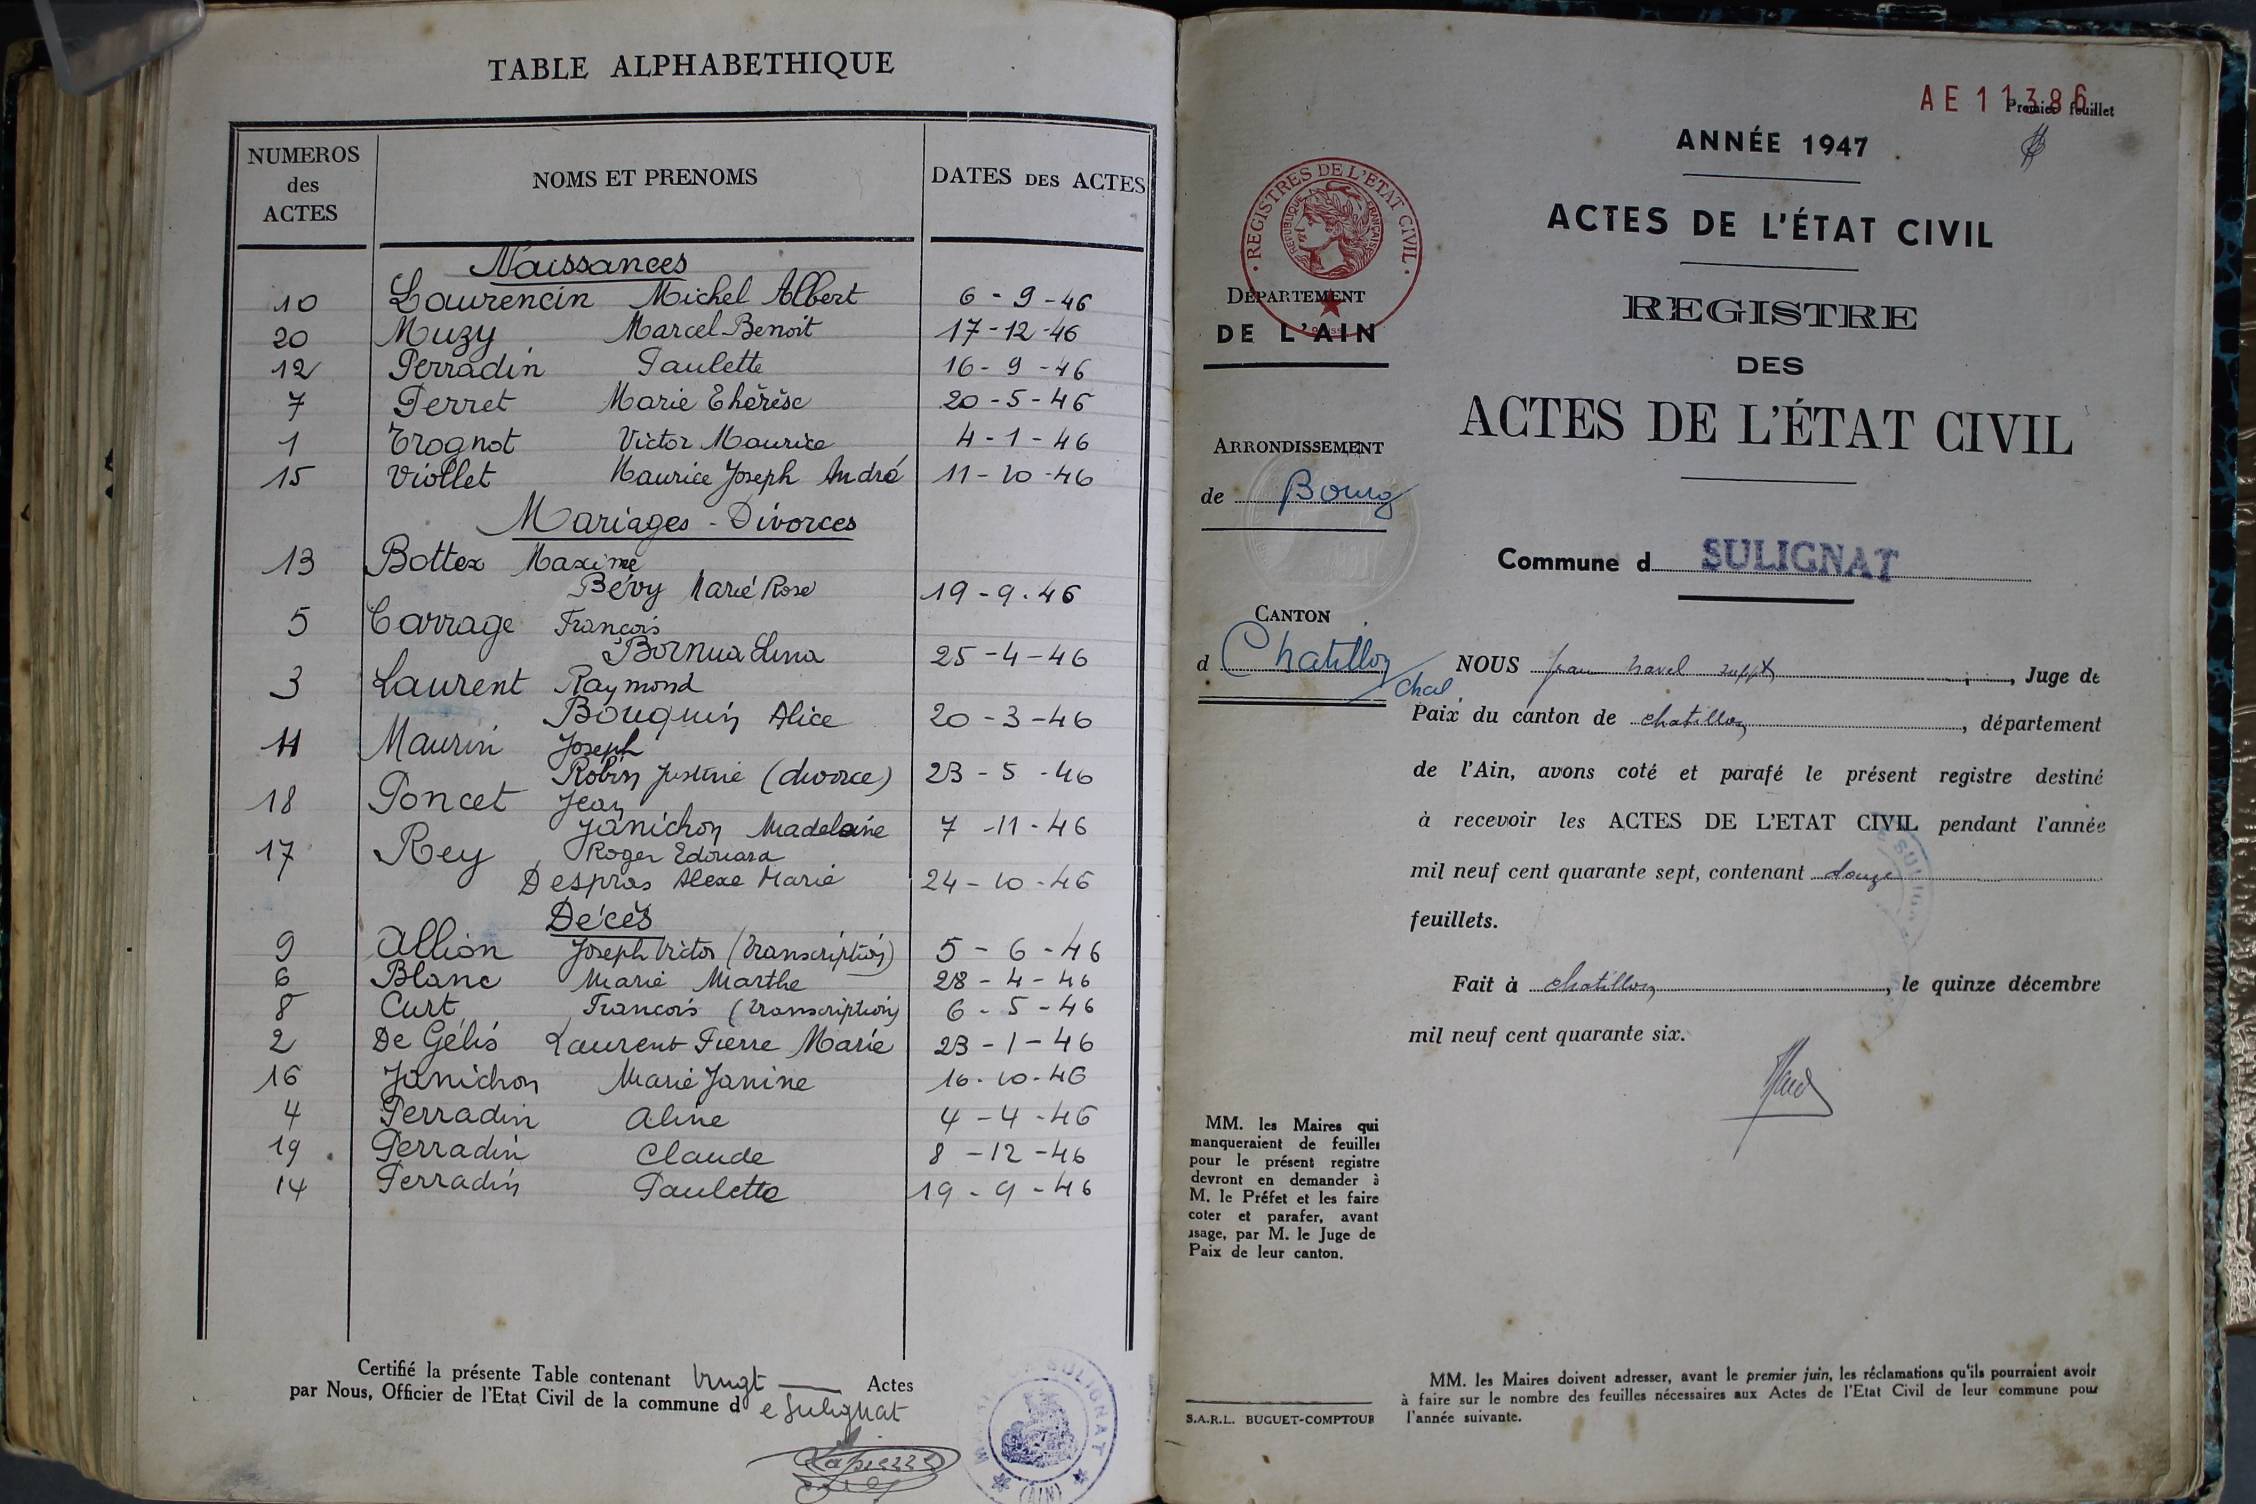 TABLE ALPHABETHIQUE
NUMEROS des ACTES NOMS ET PRENOMS DATES DES ACTES
Naissances
10 Laurencin Michel Albert 6 - 9 - 46
20 Muzy Marcel-Benoit 17 - 12 - 46
12 Perradin Paulette 16 - 9 - 46
7 Perret Marie Thérèse 20 - 5 - 46
1 Trognot Victor Maurice 4 - 1 - 46
15 Viollet Maurice Joseph André 11 - 10 - 46
Mariages - Divorces
13 Bottex Maxime
Bévy Marie Rose 19 - 9 - 46
5 Carrage François
Bornua Lina 25 - 4 - 46
3 Laurent Raymond
Bouquin Alice 20 - 3 - 46
11 Maurin Joseph
Robin Justine (divorce) 23 - 5 - 46
18 Poncet Jean
Janichon Madeleine 7 - 11 - 46
17 Rey Roger Edouard
Despras Alexe Marie 24 - 10 - 46
Décès
9 Allion Joseph Victor (transcription) 5 - 6 - 46
6 Blanc Marie Marthe 28 - 4 - 46
8 Curt François (transcription) 6 - 5 - 46
2 De Gélis Laurent Pierre Marie 23 - 1 - 46
16 Janichon Marie Janine 16 - 10 - 46
4 Perradin Aline 4 - 4 - 46
19 Perradin Claude 8 - 12 - 46
14 Perradin Paulette 19 - 9 - 46
Certifié la présente Table contenant vingt Actes
par Nous, Officier de l'Etat Civil de la commune d e Sulignat
SULIGNAT
(AIN)
AE 11386
Premier feuillet
ANNÉE 1947
ACTES DE L'ÉTAT CIVIL
REGISTRE
DES
ACTES DE L'ÉTAT CIVIL
REGISTRES DE L'ETAT CIVIL
REPUBLIQUE FRANÇAISE
DÉPARTEMENT
DE L'AIN
ARRONDISSEMENT
de Bourg
CANTON
d Chatillon
Chal.
Commune d SULIGNAT
NOUS Jean Navel suppt, Juge de
Paix du canton de chatillon, département
de l'Ain, avons coté et parafé le présent registre destiné
à recevoir les ACTES DE L'ETAT CIVIL pendant l'année
mil neuf cent quarante sept, contenant douze
feuillets.
Fait à chatillon, le quinze décembre
mil neuf cent quarante six.
MM. les Maires qui
manqueraient de feuilles
pour le présent registre
devront en demander à
M. le Préfet et les faire
coter et parafer, avant
usage, par M. le Juge de
Paix de leur canton.
S.A.R.L. BUGUET-COMPTOUR
MM. les Maires doivent adresser, avant le premier juin, les réclamations qu'ils pourraient avoir
à faire sur le nombre des feuilles nécessaires aux Actes de l'Etat Civil de leur commune pour
l'année suivante.